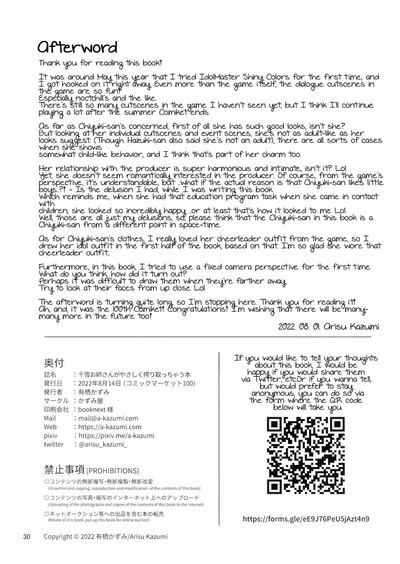 Afterword
Thank you for reading this book!
It was around May this year that I tried IdolMaster Shiny Colors for the first time, and
I got hooked on it right away. Even more than the game itself, the dialogue cutscenes in
the game are so fun!
Especially noctchill's and the like.
There's still so many cutscenes in the game I haven't seen yet, but I think I'll continue
playing a lot after the summer Comiket ends.
As far as Chiyuki-san's concerned, first of all she has such good looks, isn't she?
But looking at her individual cutscenes and event scenes, she's not as adult-like as her
looks suggest. (Though Hazuki-san also said she's not an adult), there are all sorts of cases
when she shows
somewhat child-like behavior, and I think that's part of her charm too.
Her relationship with the producer is super harmonious and intimate, isn't it? Lol
Yet, she doesn't seem romantically interested in the producer. Of course, from the game's
perspective, it's understandable, but ...what if the actual reason is that Chiyuki-san likes little
boys..?! - Is the delusion I had, while I was writing this book.
Which reminds me, when she had that education program task when she came in contact
with
children, she looked so incredibly happy ..or at least that's how it looked to me Lol
Well, those are all just my delusions, so please think that the Chiyuki-san in this book is a
Chiyuki-san from a different point in space-time.
As for Chiyuki-san's clothes, I really loved her cheerleader outfit from the game, so I
drew her idol outfit in the first half of the book, based on that. I'm so glad she wore that
cheerleader outfit.
Furthermore, in this book, I tried to use a fixed camera perspective for the first time.
What do you think, how did it turn out?
Perhaps it was difficult to draw them when they're farther away.
Try to look at their faces from up close Lol
The afterword is turning quite long, so I'm stopping here. Thank you for reading it!
Ah, and, it was the 100th Comiket! Congratulations! I'm wishing that there will be many-
many more in the future too!
2022. 08. 01. Arisu Kazumi
奥付
誌名 : 千雪お姉さんがやさしく搾り取っちゃう本
発行日 : 2022年8月14日 (コミックマーケット100)
発行者 : 有栖かずみ
サークル : かずみ屋
印刷会社 : booknext 様
Mail : mail@a-kazumi.com
Web : https://a-kazumi.com
pixiv : https://pixiv.me/a-kazumi
twitter : @arisu_kazumi_
禁止事項 (PROHIBITIONS)
◎コンテンツの無断複写・無断複製・無断改変
(Unauthorized copying, reproduction and modification of the contents of this book)
◎コンテンツの写真・複写のインターネット上へのアップロード
(Uploading of the photographs and copies of the contents of this book to the internet)
◎ネットオークション等への出品を含む本の転売
(Resale of this book, put up this book for online auction)
If you would like to tell your thoughts
about this book, I would be
happy if you would share them
via Twitter, etc.Or if you wanna tell,
but would prefer to stay
anonymous, you can do so via
the form where the QR code
below will take you.
https://forms.gle/eE9J76PeU5jAzt4n9
30 Copyright © 2022 有栖かずみ/Arisu Kazumi